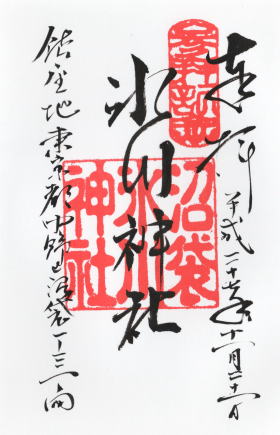 奉拝
平成二十七年十一月二十一日
氷川神社
沼袋
氷川
神社
鎮座地 東京都中野区沼袋一ー三一ー四